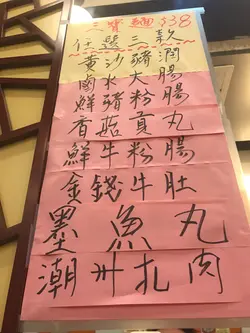 三寶麵 $38
任選三款
黃沙豬潤
鹵水大腸
鮮豬粉腸
香菇貢丸
鮮牛粉腸
金錢牛肚
墨魚丸
潮州扎肉